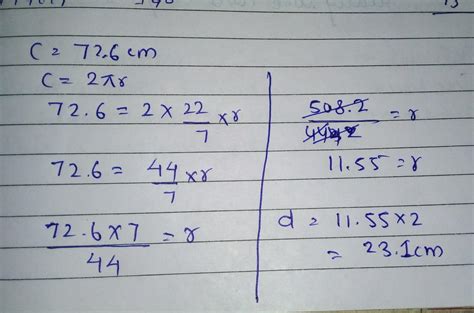 C = 72.6 cm
C = 2πr
72.6 = 2 × 22/7 × r
72.6 = 44/7 × r
72.6 × 7/44 = r
508.2/44 = r
11.55 = r
d = 11.55 × 2
= 23.1 cm